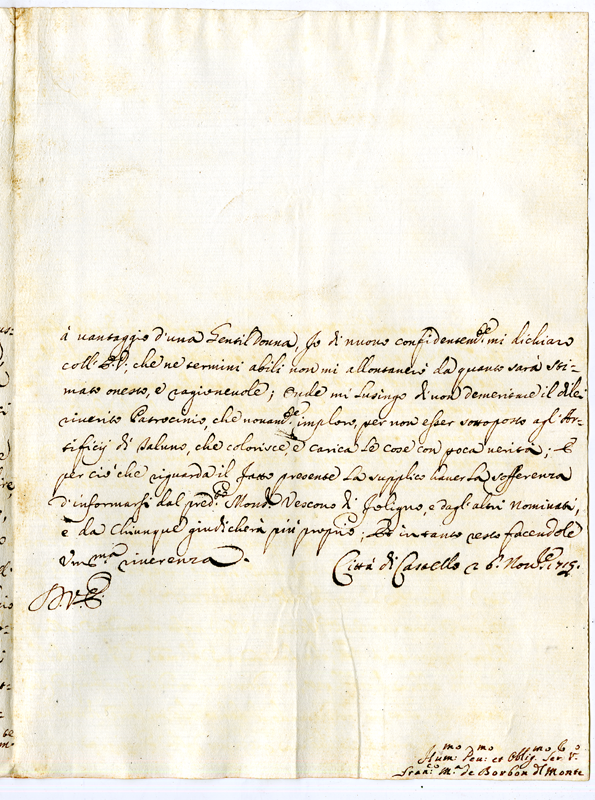 à vantaggio d'una Gentil Donna, Io di nuovo confidentem.te mi dichiaro
coll' E.V: che ne termini abili non mi allontanerò da quanto sarà sti=
mato onesto, e ragioneuole; Onde mi lusingo di non demeritare il di lei
riuerito Patrocinio, che nouam.te imploro, per non esser sottoposto agl' Ar=
tificij di taluno, che colorisce, e carica le cose con poca verità; E
per ciò che riguarda il fatto presente La supplico hauer la sofferenza
d'informarsi dal pred.to Mons.r Vescouo di Foligno, e dagl' altri Nominati,
e da Chiunque giudicherà più proprio; Et in tanto resto facendole
Um.ma riuerenza.
Città di Castello 26. Nov.bre 1715.
D.V.E.
Hum:mo Deu:mo et Oblig.mo Ser.e V.o
Fran.co M.a de Borbon Dl Monte